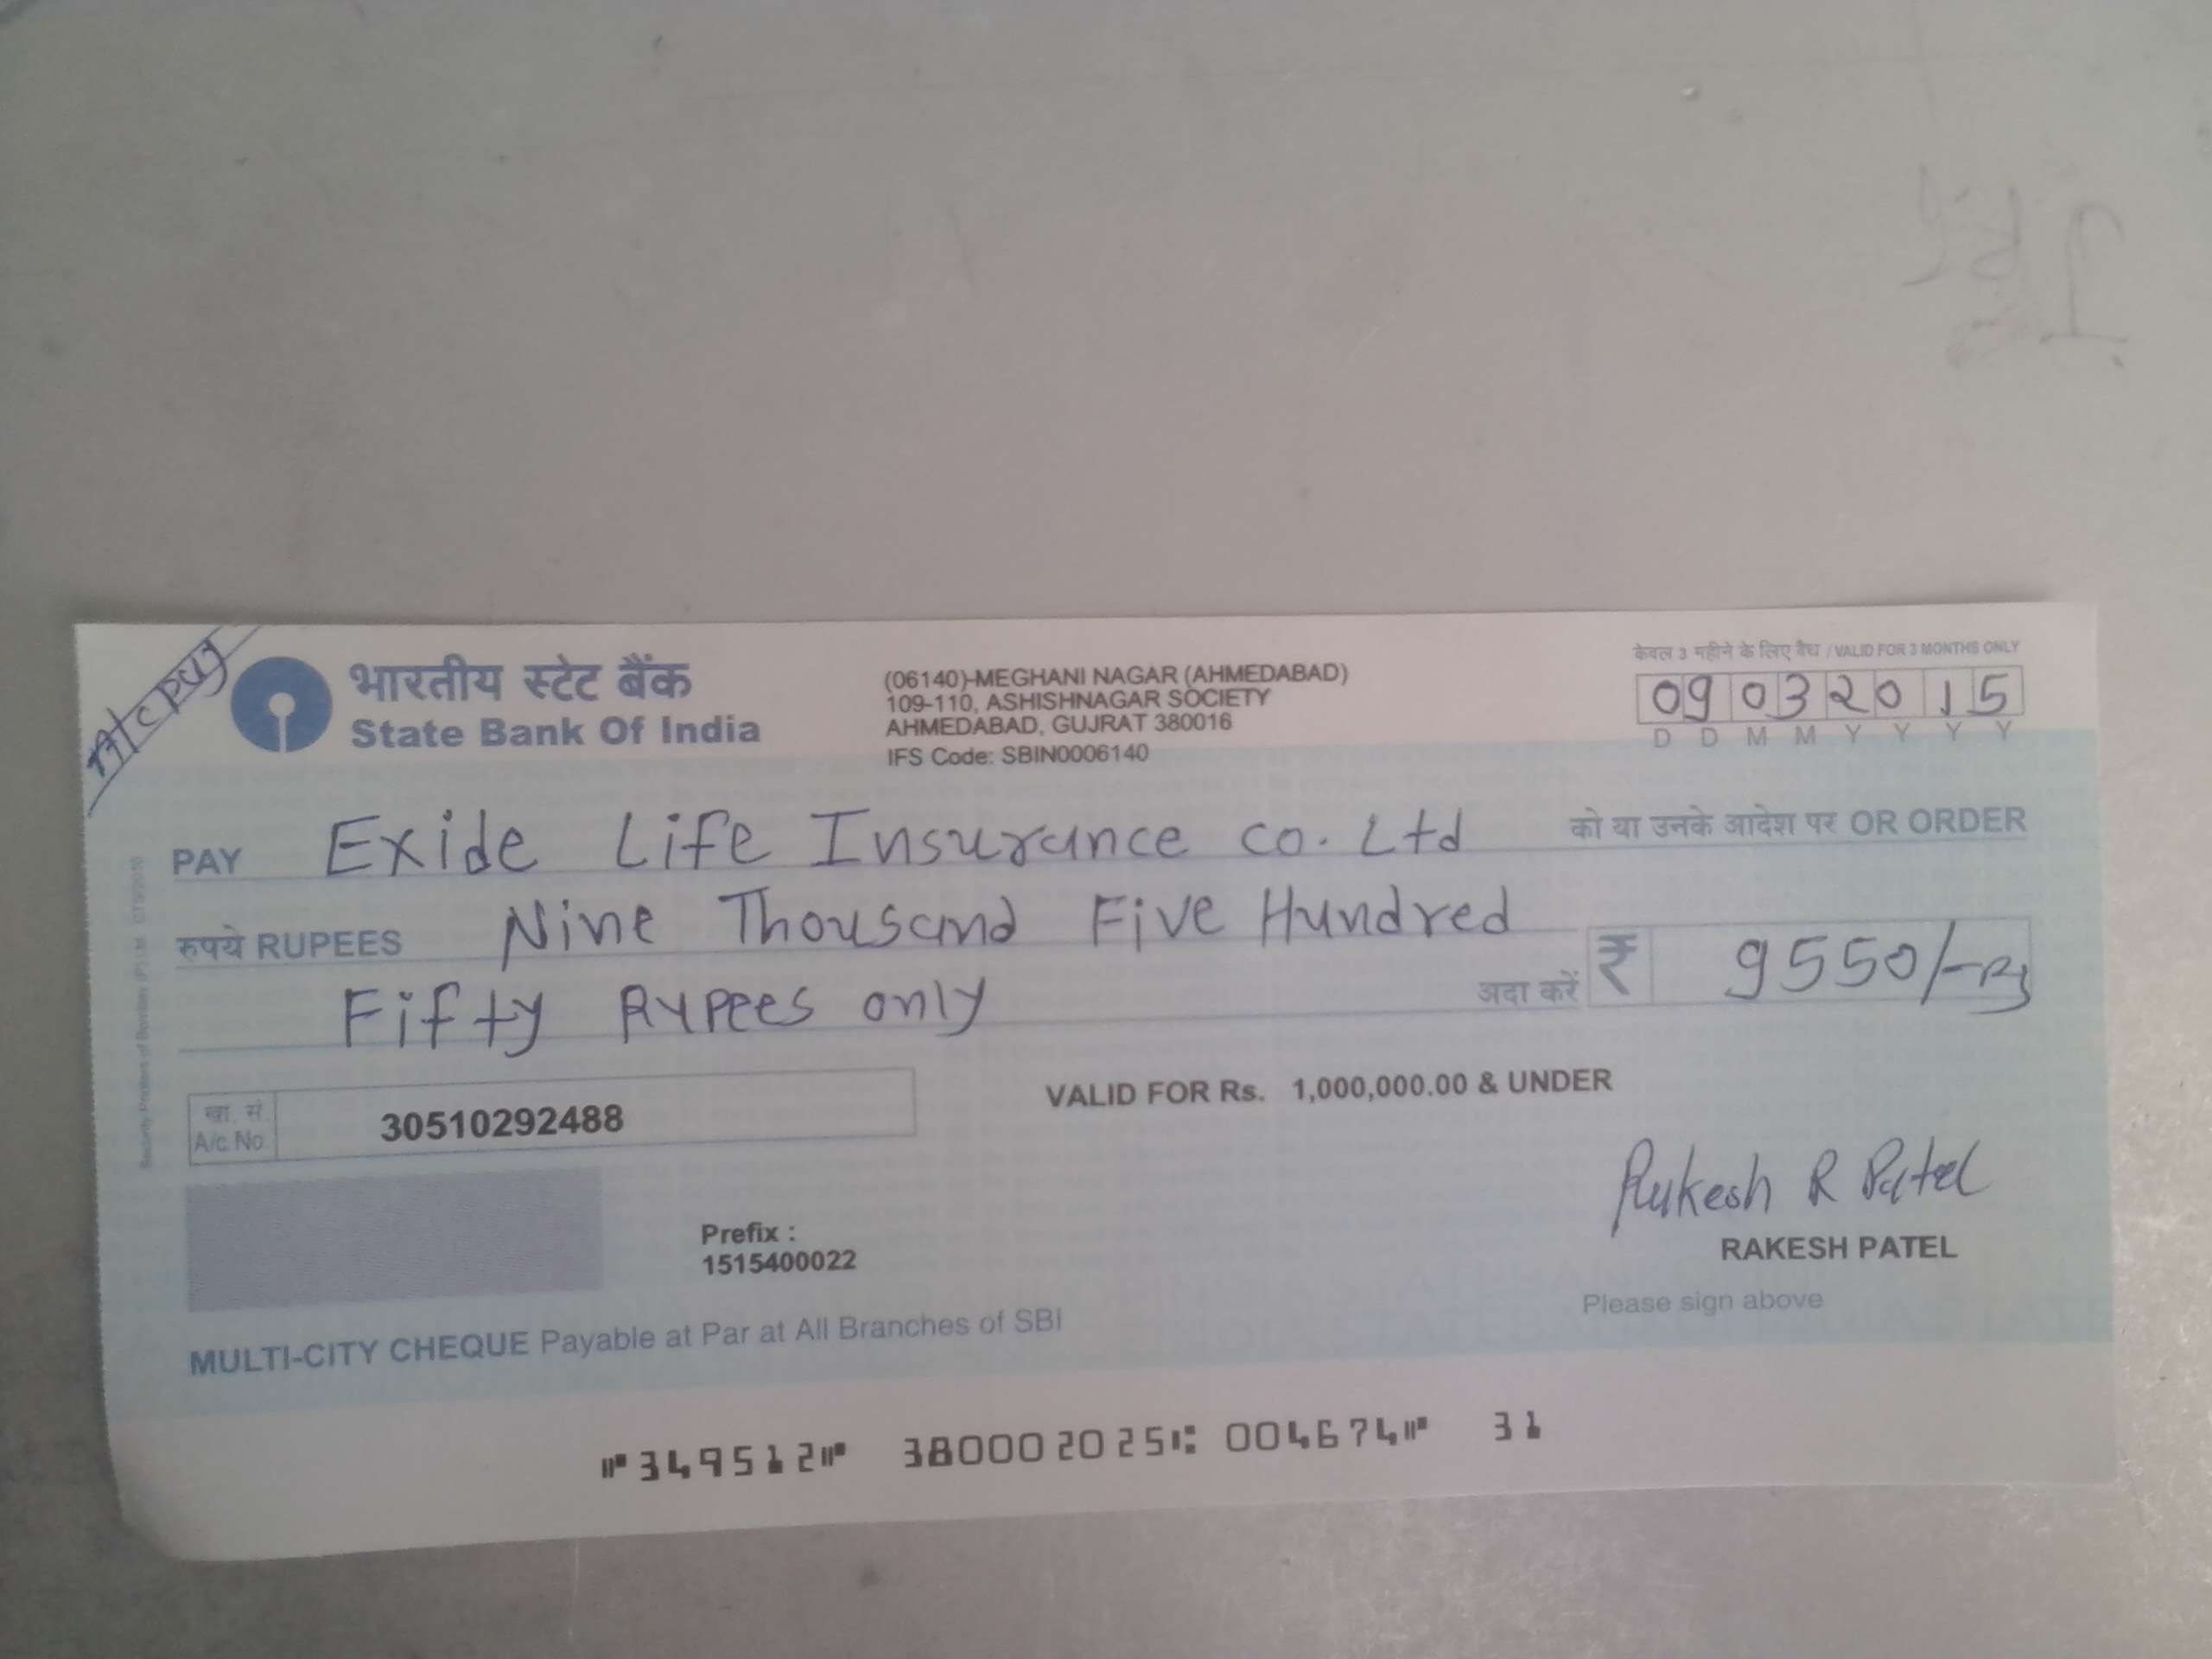 A/c pay
भारतीय स्टेट बैंक
State Bank Of India
(06140)-MEGHANI NAGAR (AHMEDABAD)
109-110, ASHISHNAGAR SOCIETY
AHMEDABAD, GUJRAT 380016
IFS Code: SBIN0006140
केवल 3 महीने के लिए वैध / VALID FOR 3 MONTHS ONLY
09032015
D D M M Y Y Y Y
PAY Exide Life Insurance co. Ltd को या उनके आदेश पर OR ORDER
रुपये RUPEES Nine Thousand Five Hundred
Fifty Rupees only अदा करें ₹ 9550/-Rs
खा. सं.
A/c. No. 30510292488
VALID FOR Rs. 1,000,000.00 & UNDER
Rakesh R Patel
RAKESH PATEL
Please sign above
Prefix :
1515400022
MULTI-CITY CHEQUE Payable at Par at All Branches of SBI
⑈349512⑈ 380002025⑆ 004674⑈ 31